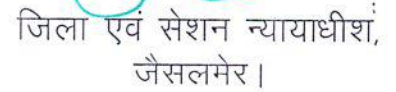 जिला एवं सेशन न्यायाधीश,
जैसलमेर।